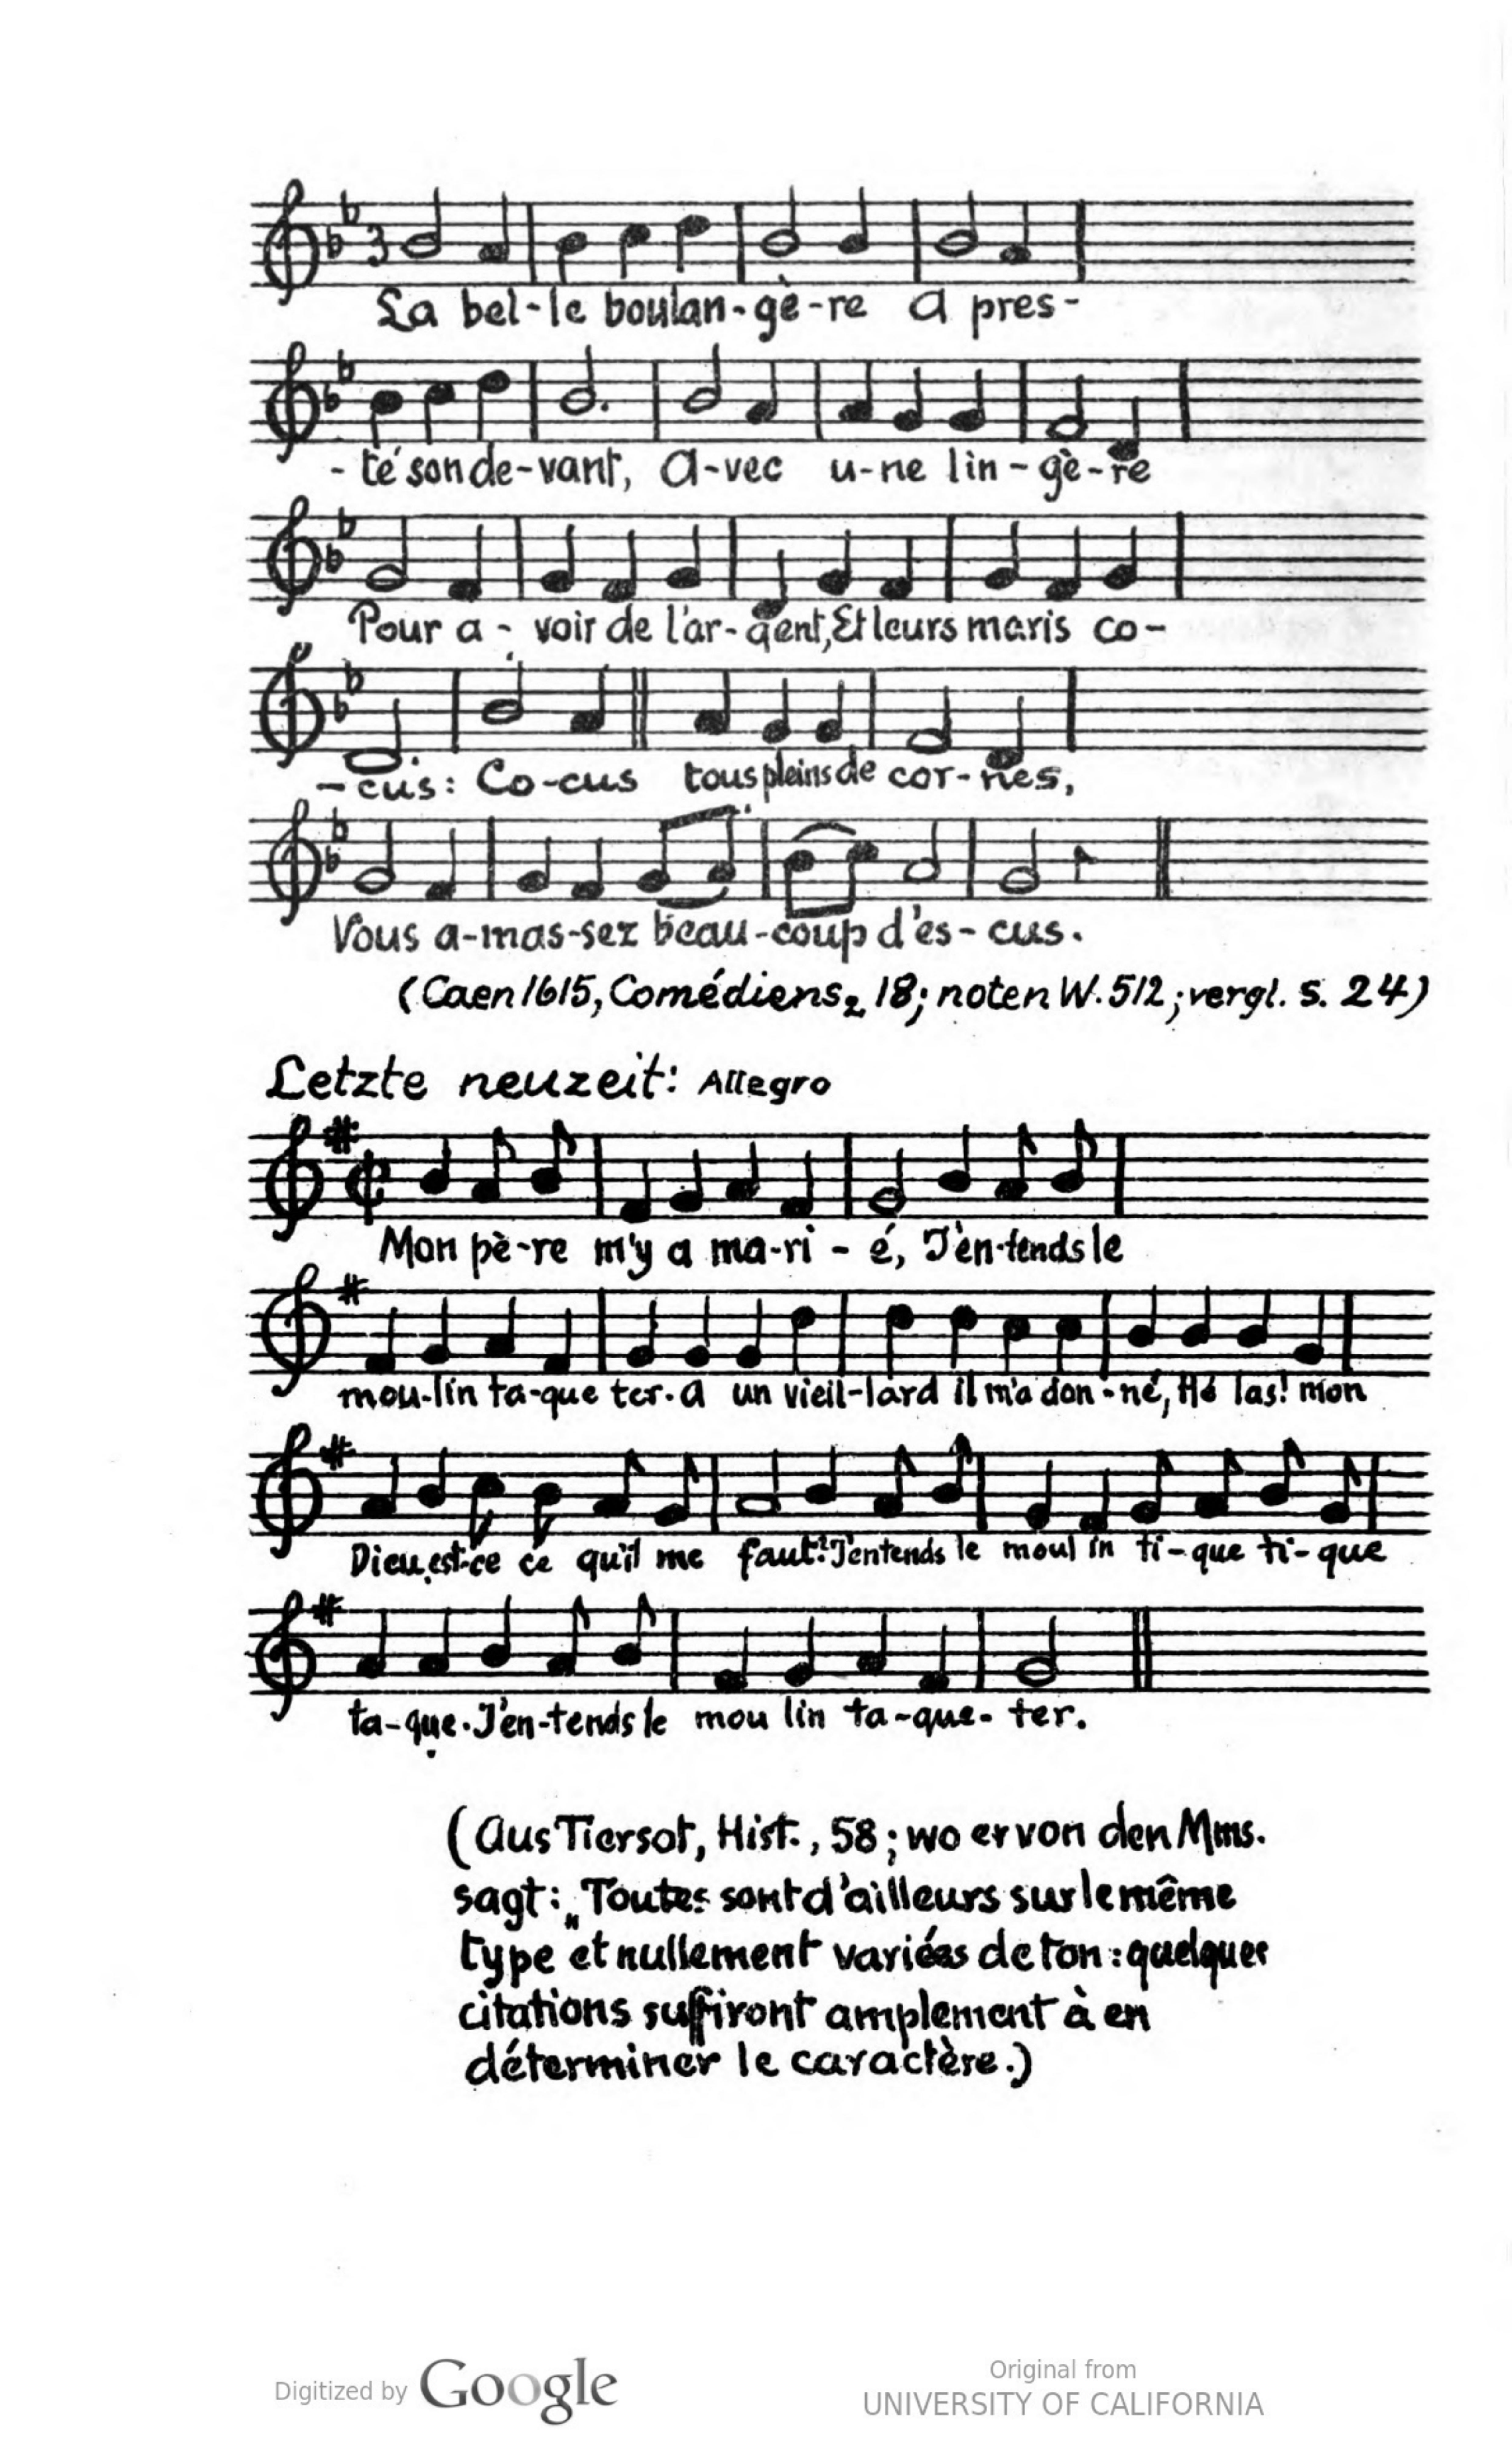 3
La bel-le boulan-gè-re A pres-
-té son de-vant, A-vec u-ne lin-gè-re
Pour a-voir de l'ar-gent, Et leurs maris co-
-cus: Co-cus tous pleins de cor-nes,
Vous a-mas-sez beau-coup d'es-cus.
(Caen 1615, Comédiens, 18; noten W. 512; vergl. S. 24)
Letzte neuzeit: Allegro
Mon pè-re m'y a ma-ri-é, J'en-tends le
mou-lin ta-que ter. A un vieil-lard il m'a don-né, Hé las! mon
Dieu, est-ce ce qu'il me faut? J'entends le moul in ti-que ti-que
ta-que. J'en-tends le mou lin ta-que-ter.
(Aus Tiersot, Hist., 58; wo er von den Mms.
sagt: „Toutes sont d'ailleurs sur le même
type et nullement variées de ton: quelques
citations suffiront amplement à en
déterminer le caractère.)
Digitized by Google
Original from
UNIVERSITY OF CALIFORNIA